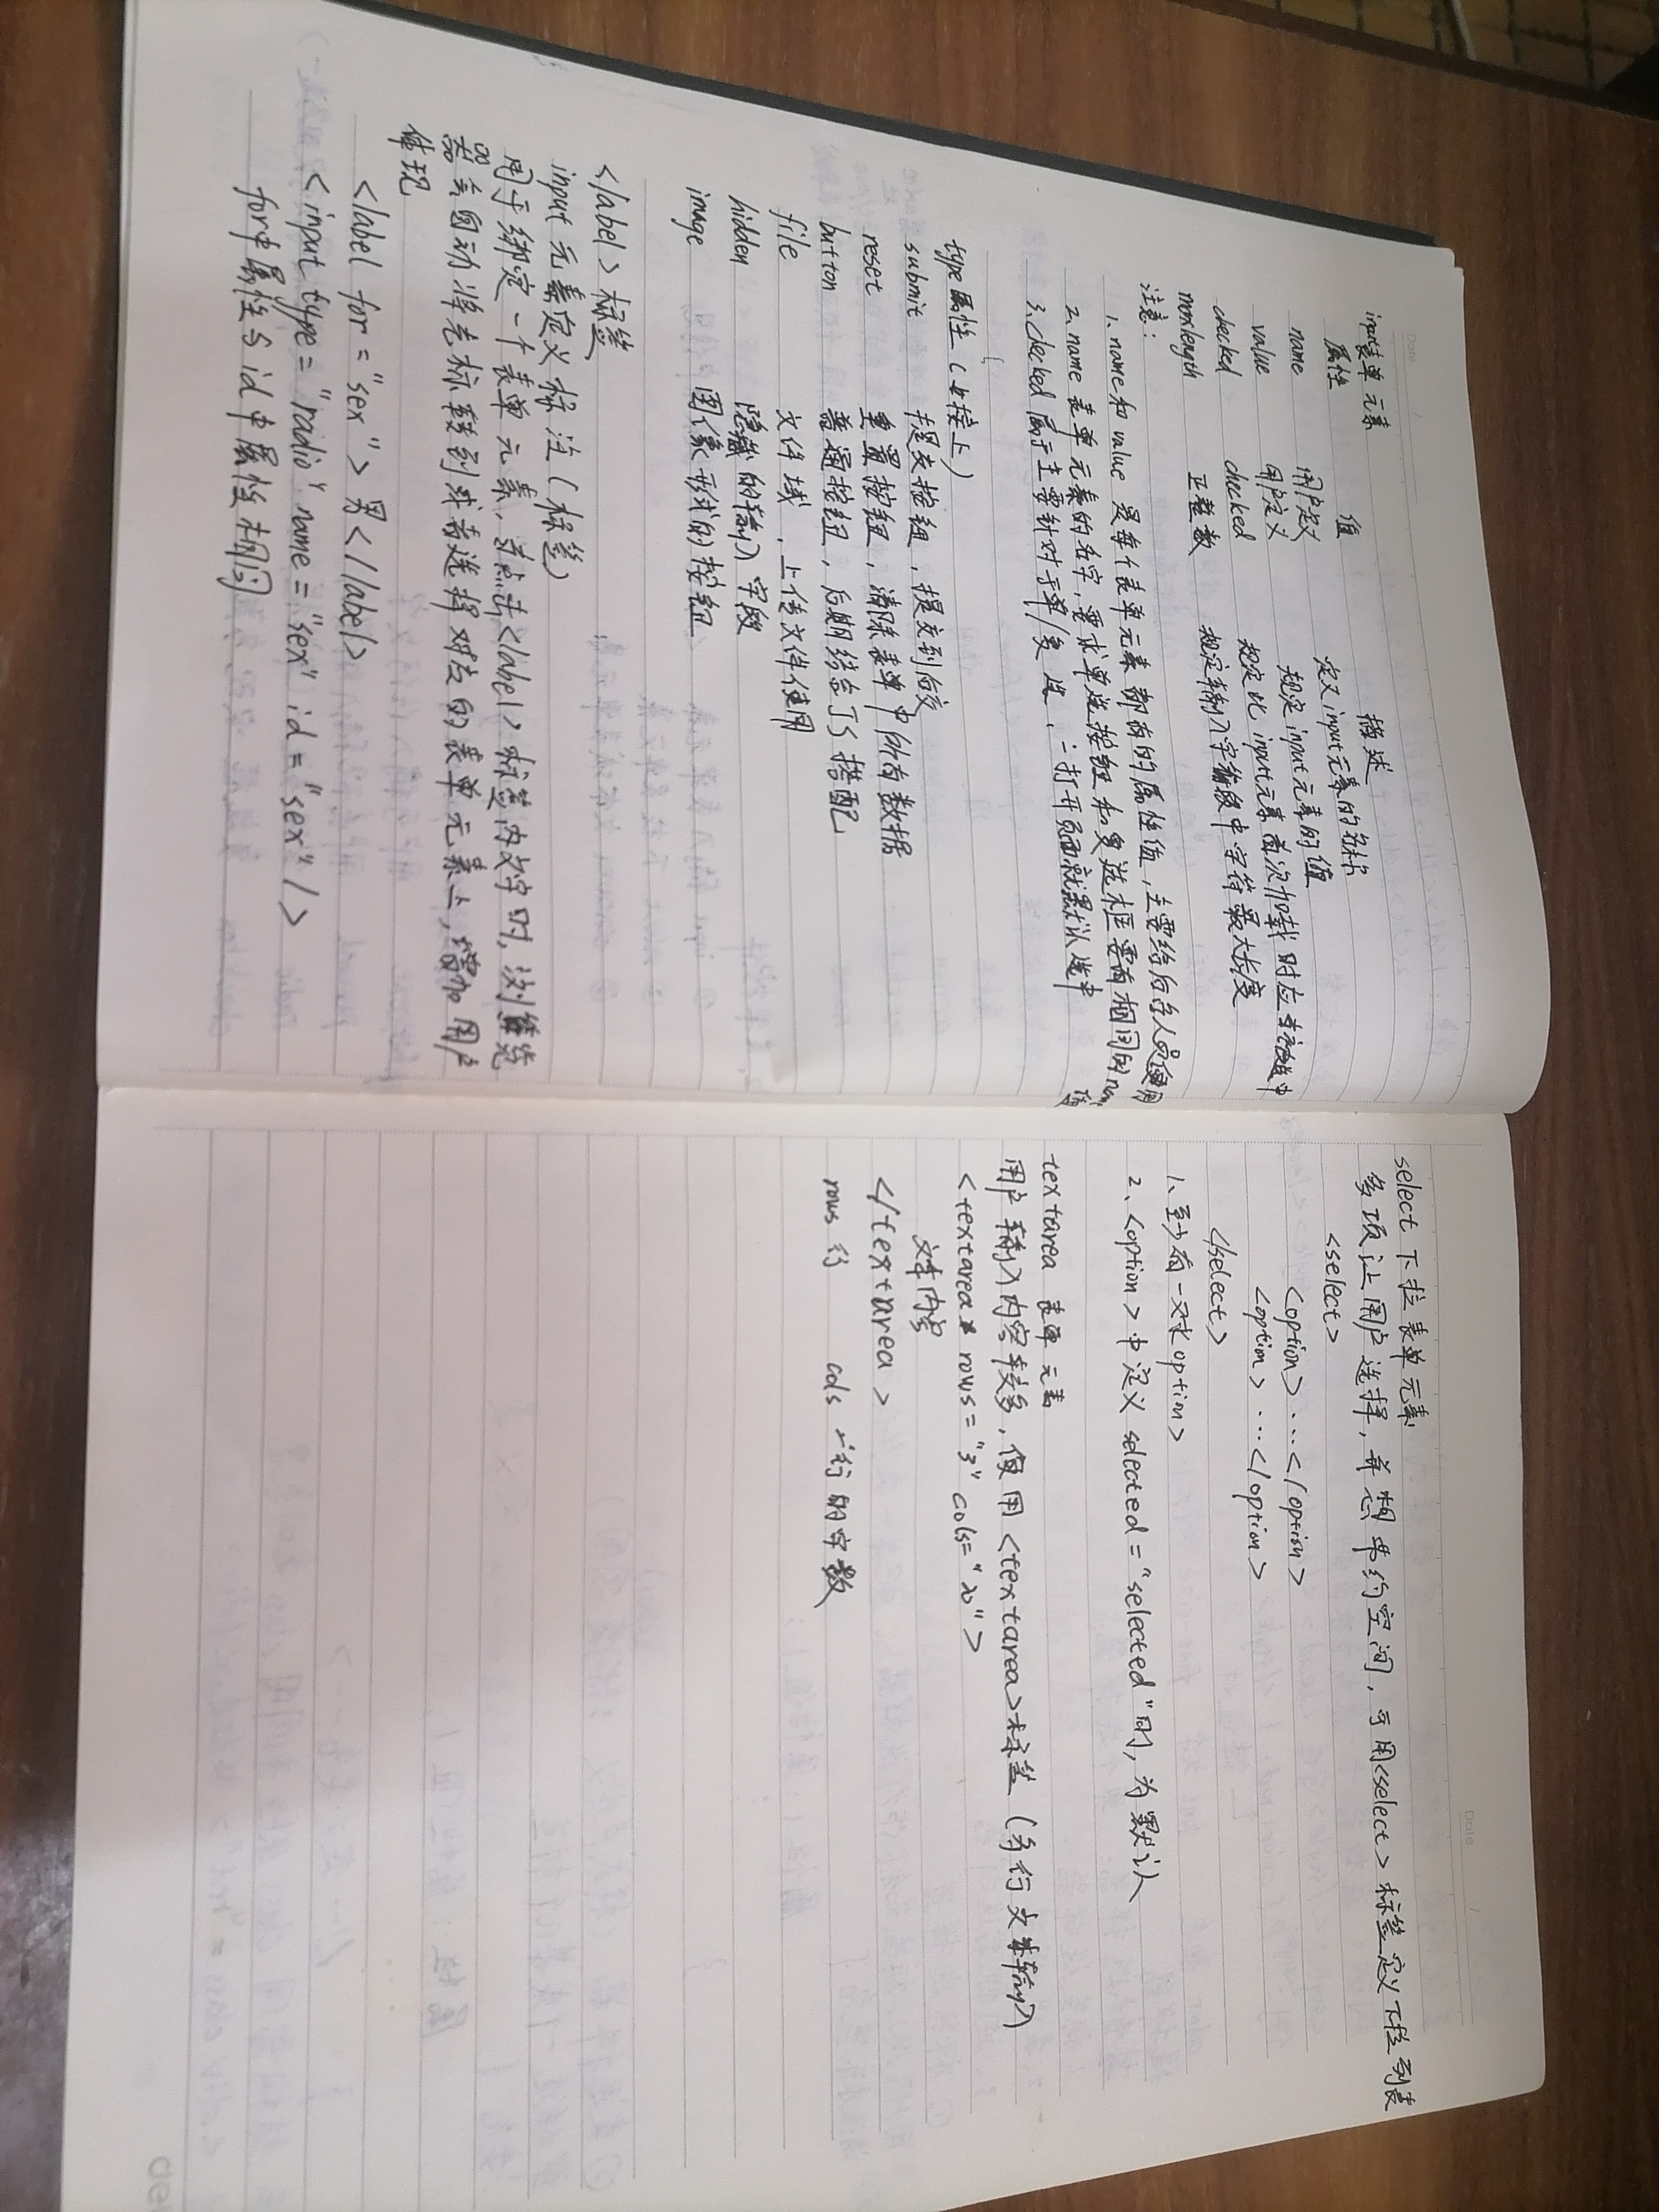 Date
input表单元素
属性 值 描述
name 用户定义 定义input元素的名称
value 用户定义 规定input元素的值
checked checked 规定此input元素首次加载时应当被选中
maxlength 正整数 规定输入字段中字符最大长度
注意:
1、name和value 是每个表单元素都有的属性值,主要给后台人员使用
2、name表单元素的名字,要求单选按钮和复选框要有相同的name值
3、checked属于主要针对于单/复选,一打开页面就默认选中
type属性(接上)
submit 提交按钮,提交到后
reset 重置按钮,清除表单中所有数据
button 普通按钮,后期结合JS搭配
file 文件域,上传文件使用
hidden 隐藏的输入字段
image 图像形式的按钮
</label>标签
input元素定义标注(标签)
用于绑定一个表单元素,当点击<label>标签内文字时,浏览
器会自动将光标转到或者选择对应的表单元素上,增加用户
体现
</label for="sex">男</label>
<input type="radio" name="sex" id="sex"/>
for中属性与id中属性相同
Date
select下拉表单元素
多项让用户选择,并想节约空间,可用<select>标签定义下拉列表
<select>
<option>...</option>
<option>...</option>
</select>
1、至少有一对option>
2、<option>中定义selected="selected"时,为默认
textarea 表单元素
用户输入内容较多,使用<textarea>标签(多行文本输入)
<textarea rows="3" cols="20">
文本内容
</textarea>
rows 行 cols 一行的字数
deli